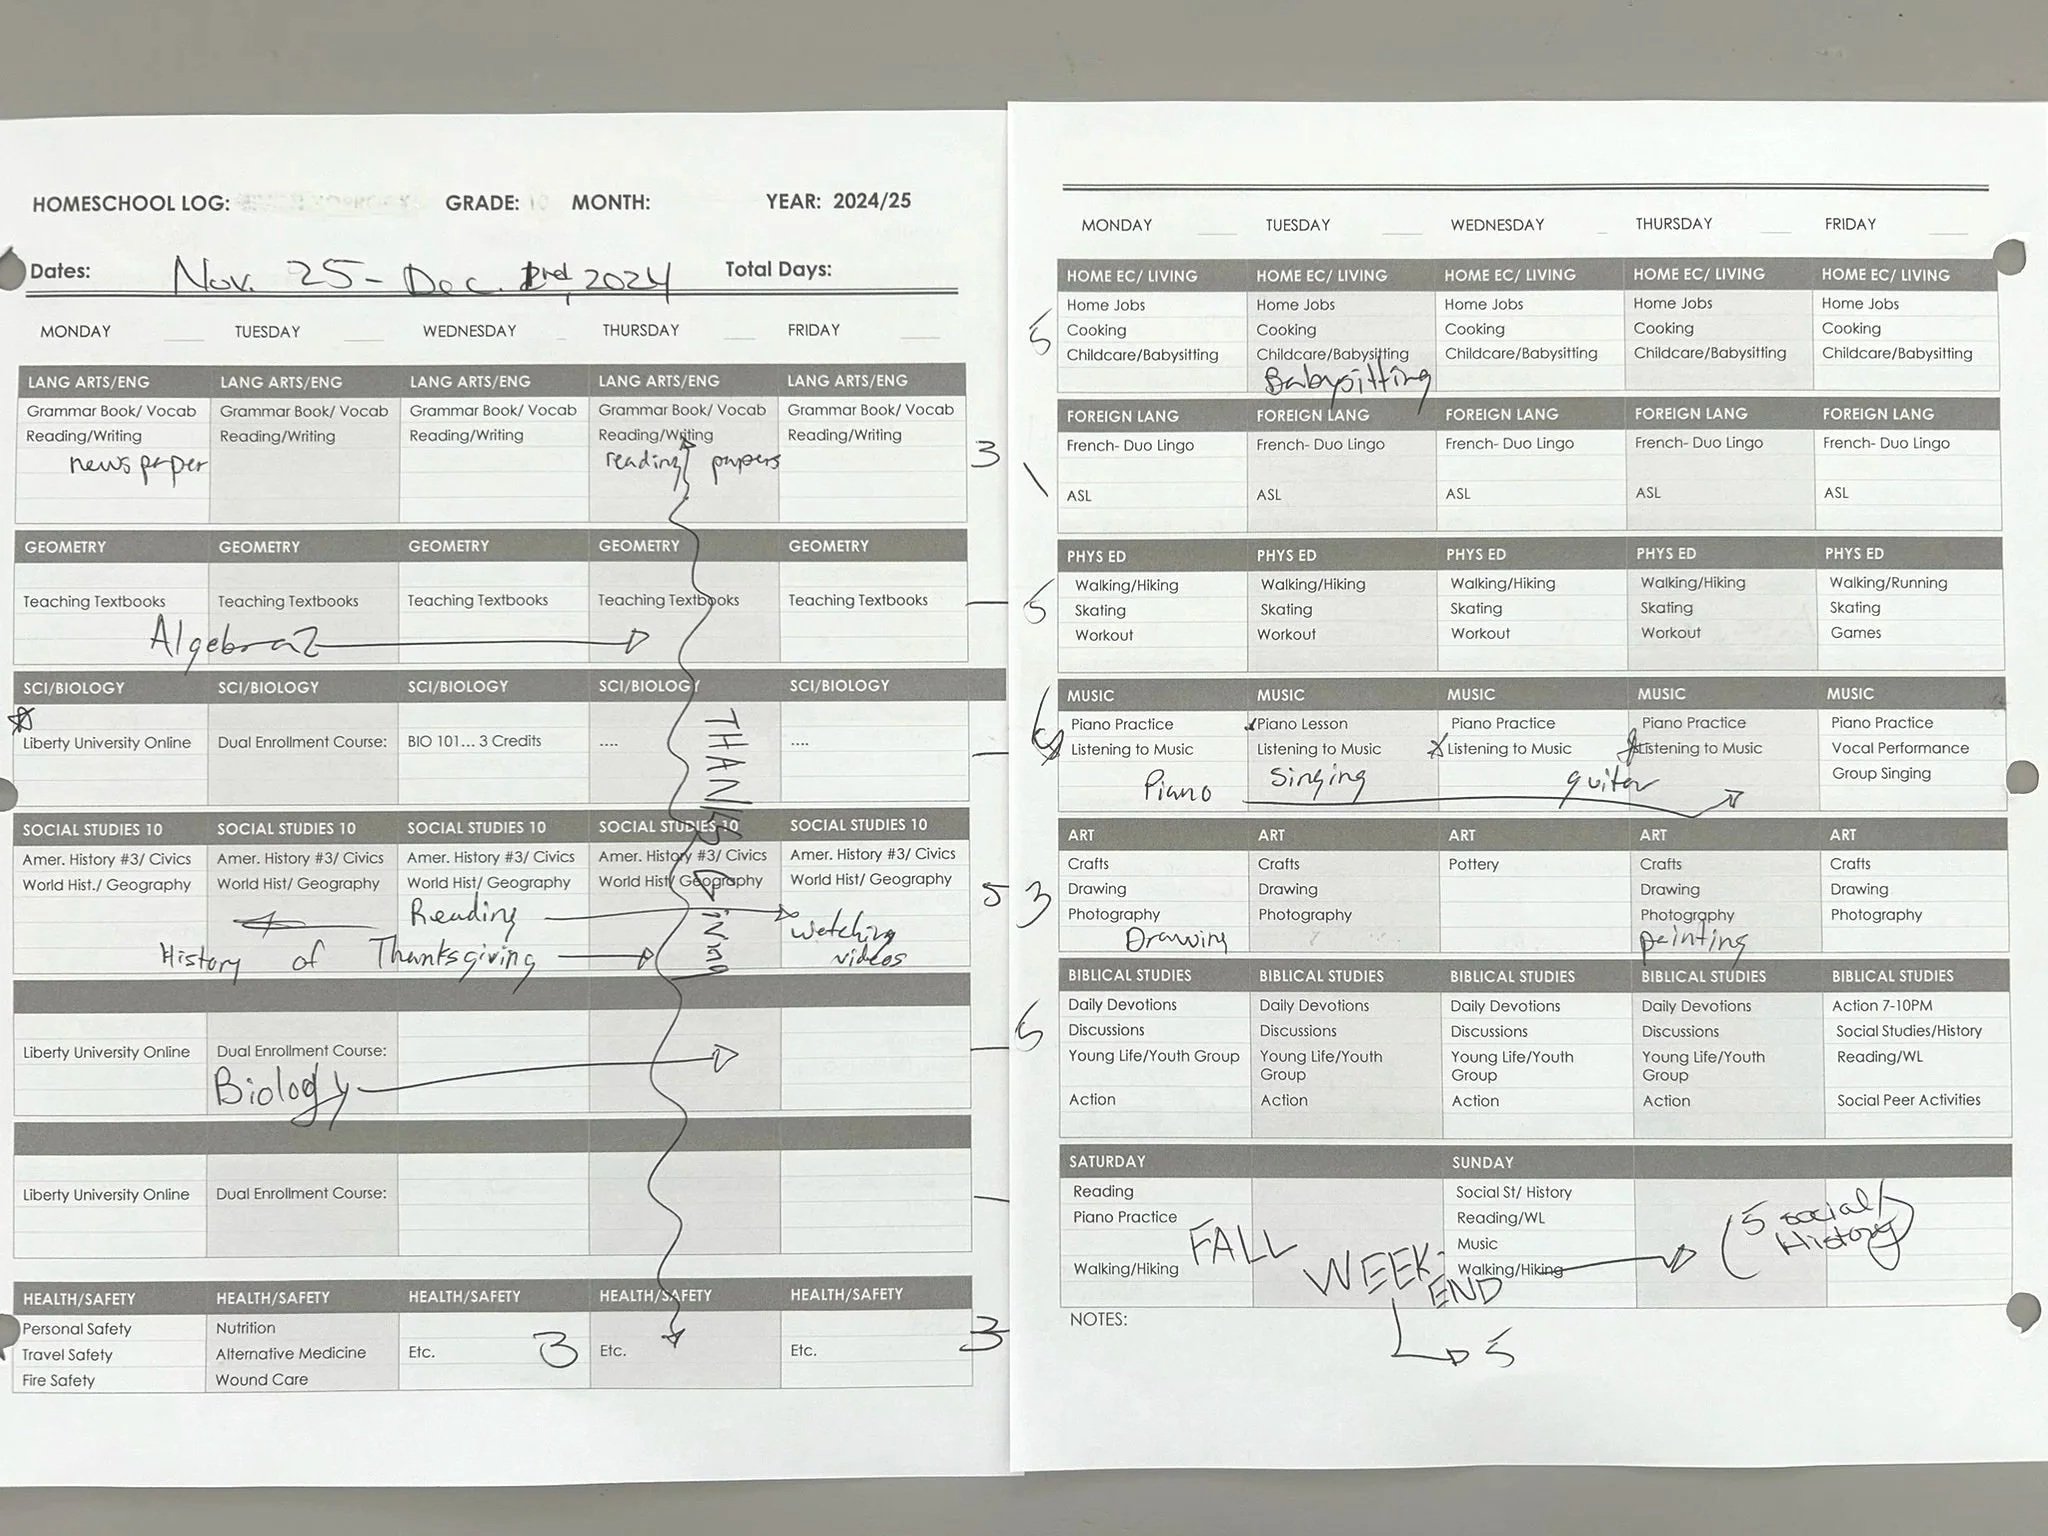 HOMESCHOOL LOG: GRADE: 10 MONTH: YEAR: 2024/25
Dates: Nov. 25 - Dec. 2024 Total Days:
MONDAY TUESDAY WEDNESDAY THURSDAY FRIDAY
LANG ARTS/ENG LANG ARTS/ENG LANG ARTS/ENG LANG ARTS/ENG LANG ARTS/ENG
Grammar Book/ Vocab Grammar Book/ Vocab Grammar Book/ Vocab Grammar Book/ Vocab Grammar Book/ Vocab
Reading/Writing Reading/Writing Reading/Writing Reading/Writing Reading/Writing
newspaper reading papers 3
GEOMETRY GEOMETRY GEOMETRY GEOMETRY GEOMETRY
Teaching Textbooks Teaching Textbooks Teaching Textbooks Teaching Textbooks Teaching Textbooks
Algebra 2
SCI/BIOLOGY SCI/BIOLOGY SCI/BIOLOGY SCI/BIOLOGY SCI/BIOLOGY
Liberty University Online Dual Enrollment Course: BIO 101... 3 Credits .... ....
THANKSGiving
SOCIAL STUDIES 10 SOCIAL STUDIES 10 SOCIAL STUDIES 10 SOCIAL STUDIES 10 SOCIAL STUDIES 10
Amer. History #3/ Civics Amer. History #3/ Civics Amer. History #3/ Civics Amer. History #3/ Civics Amer. History #3/ Civics
World Hist./ Geography World Hist/ Geography World Hist/ Geography World Hist/ Geography World Hist/ Geography
Reading 5
watching
History of Thanksgiving videos
Liberty University Online Dual Enrollment Course:
Biology
Liberty University Online Dual Enrollment Course:
HEALTH/SAFETY HEALTH/SAFETY HEALTH/SAFETY HEALTH/SAFETY HEALTH/SAFETY
Personal Safety Nutrition
Travel Safety Alternative Medicine Etc. 3 Etc. Etc. 3
Fire Safety Wound Care
MONDAY TUESDAY WEDNESDAY THURSDAY FRIDAY
HOME EC/ LIVING HOME EC/ LIVING HOME EC/ LIVING HOME EC/ LIVING HOME EC/ LIVING
Home Jobs Home Jobs Home Jobs Home Jobs Home Jobs
5 Cooking Cooking Cooking Cooking Cooking
Childcare/Babysitting Childcare/Babysitting Childcare/Babysitting Childcare/Babysitting Childcare/Babysitting
Babysitting
FOREIGN LANG FOREIGN LANG FOREIGN LANG FOREIGN LANG FOREIGN LANG
French- Duo Lingo French- Duo Lingo French- Duo Lingo French- Duo Lingo French- Duo Lingo
ASL ASL ASL ASL ASL
PHYS ED PHYS ED PHYS ED PHYS ED PHYS ED
Walking/Hiking Walking/Hiking Walking/Hiking Walking/Hiking Walking/Running
5 Skating Skating Skating Skating Skating
Workout Workout Workout Workout Games
MUSIC MUSIC MUSIC MUSIC MUSIC
Piano Practice Piano Lesson Piano Practice Piano Practice Piano Practice
Listening to Music Listening to Music Listening to Music Listening to Music Vocal Performance
Piano Singing guitar Group Singing
ART ART ART ART ART
Crafts Crafts Pottery Crafts Crafts
3 Drawing Drawing Drawing Drawing
Photography Photography Photography Photography
Drawing painting
BIBLICAL STUDIES BIBLICAL STUDIES BIBLICAL STUDIES BIBLICAL STUDIES BIBLICAL STUDIES
Daily Devotions Daily Devotions Daily Devotions Daily Devotions Action 7-10PM
5 Discussions Discussions Discussions Discussions Social Studies/History
Young Life/Youth Group Young Life/Youth Young Life/Youth Young Life/Youth Reading/WL
Group Group Group
Action Action Action Action Social Peer Activities
SATURDAY SUNDAY
Reading Social St/ History
Piano Practice Reading/WL
Music
Walking/Hiking Walking/Hiking
FALL WEEK-
END
(5 social/
History)
NOTES:
5